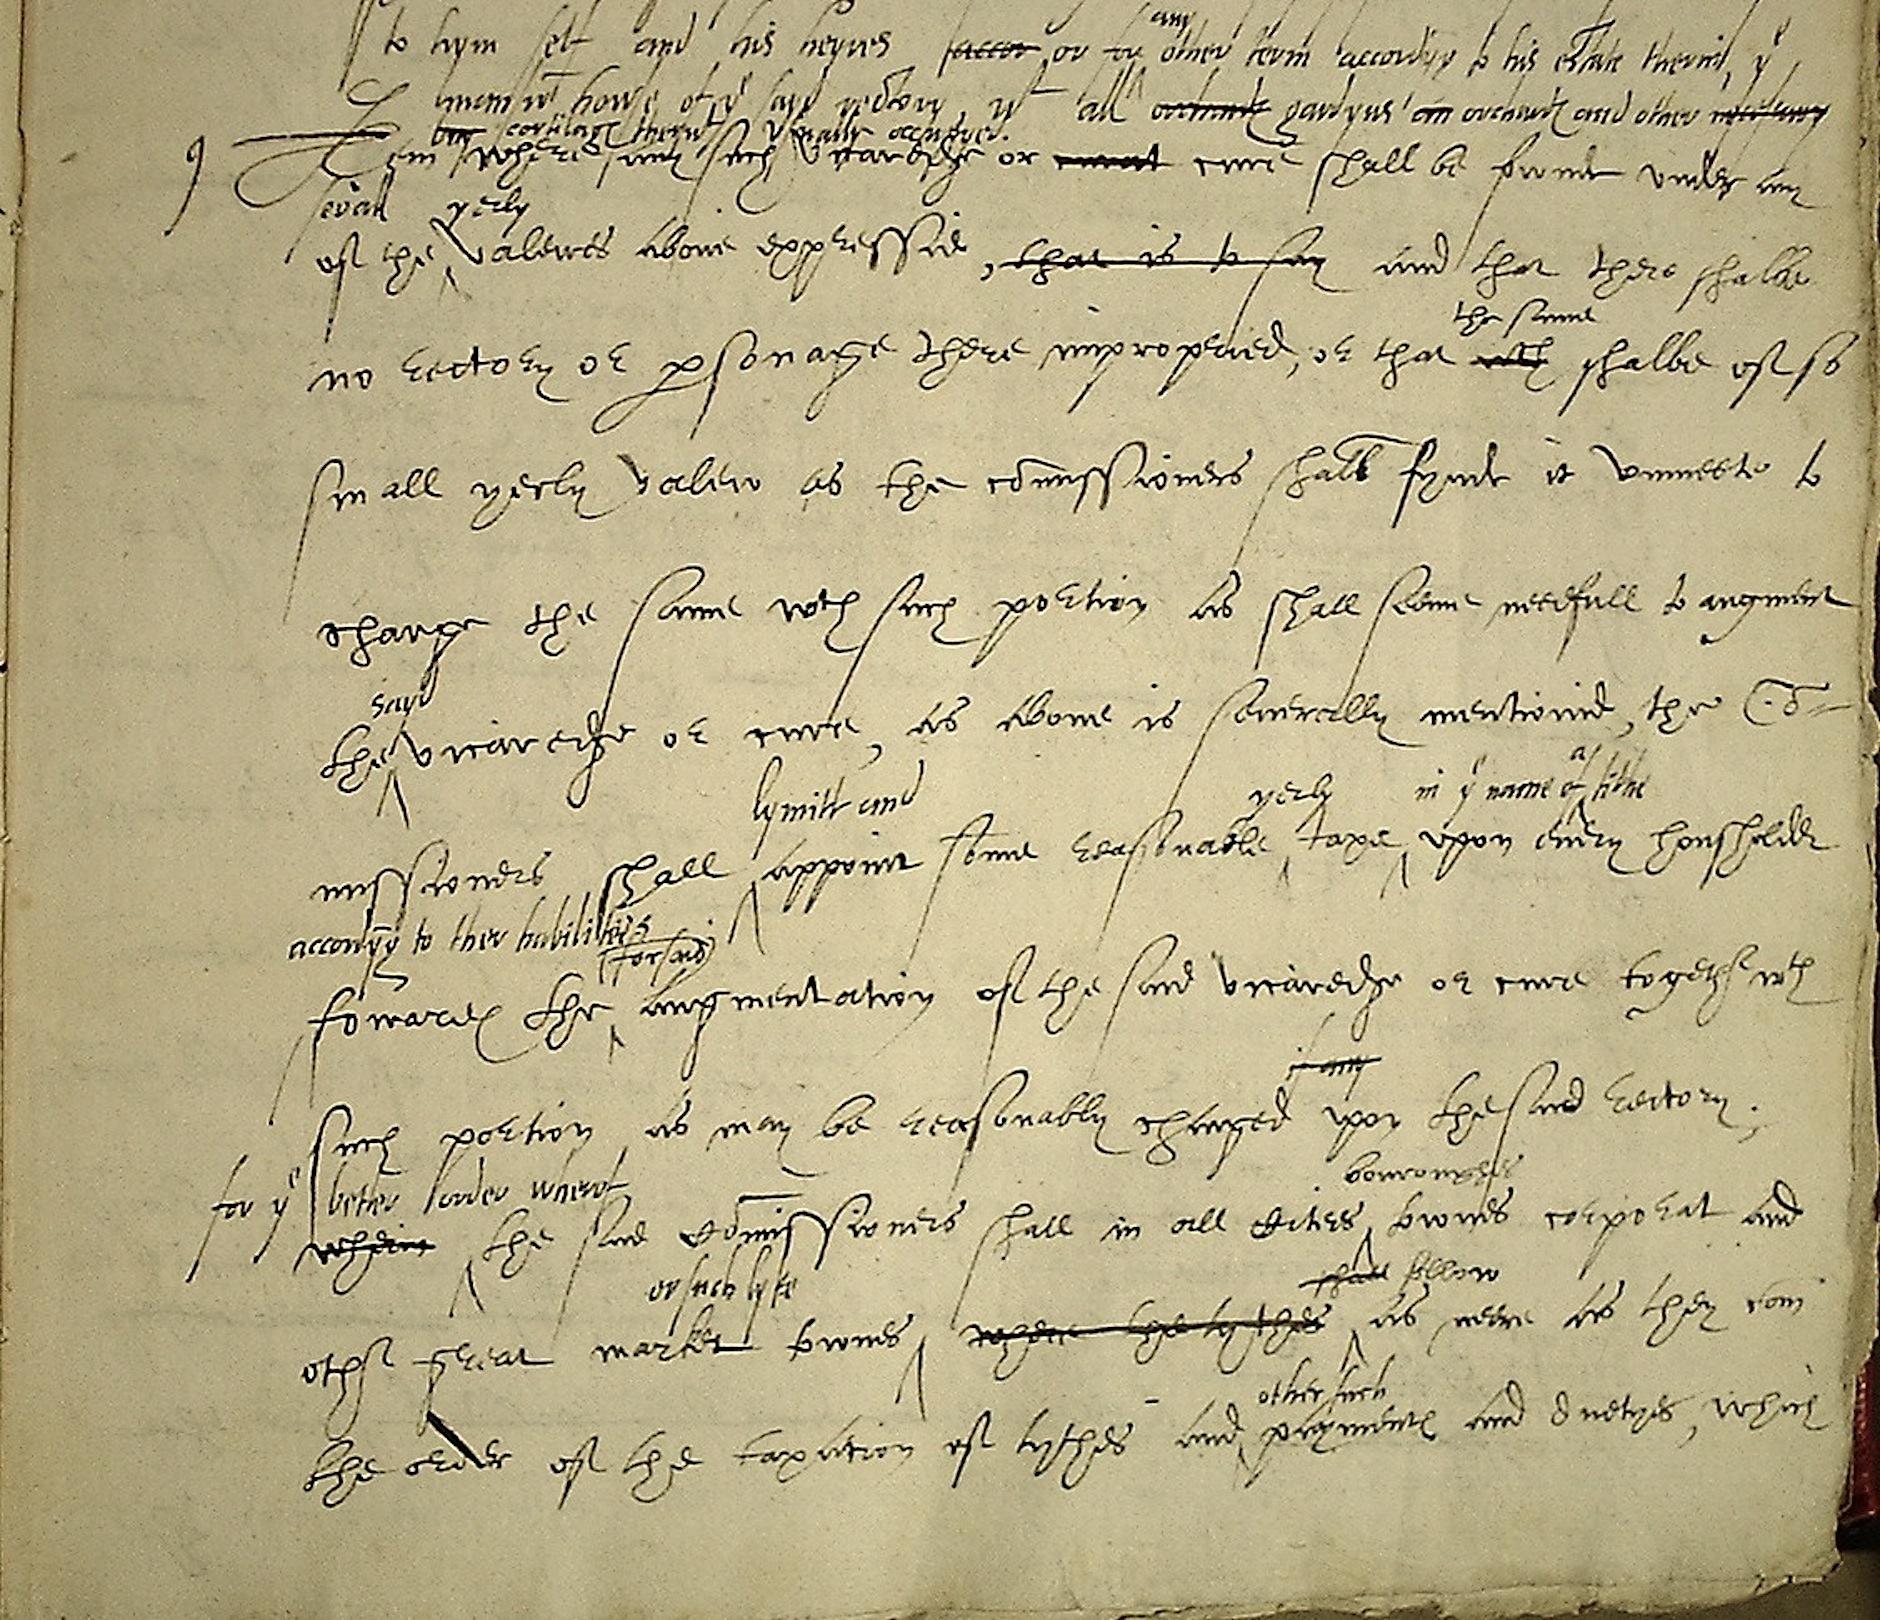 to hym self and his heyres accor or for other term accordyng to his estate therin, yᵉ
any
howse of yᵉ sayd rectory, wᵗ all orchards gardyns an orchards and other necessary
cortilage therwᵗ usually occupyed.
9 Item where any such vicaredge or curat cure shall be founde under any
sevall yerly
of the valewes above expressid, that is to say and that there shalbe
the same
no rectory or psonage there impropried, or that shalbe of so
small yerly valew as the comissioners shall fynde it unmeete to
charge the same wth such portion as shall seeme needfull to augment
sayd
the vicaredge or cure, as above is severally mentionid, the Co=
lymitt and yerly in yᵉ name of a tithe
missioners shall appoint some reasonable taxe upon every housholder
accordyng to ther habilites
forsaid
towards the augmentation of the said vicaredge or cure togethr wth
if any
such portion as may be reasonably charged upon the said rectory.
for yᵉ better order wherof bouroughes
wherin the said comissioners shall in all Cities townes corporat and
or such lyke shall follow
othr great market townes where the tythes as neere as they can
other such
the order of the taxation of tythes and payments and duetyes, which